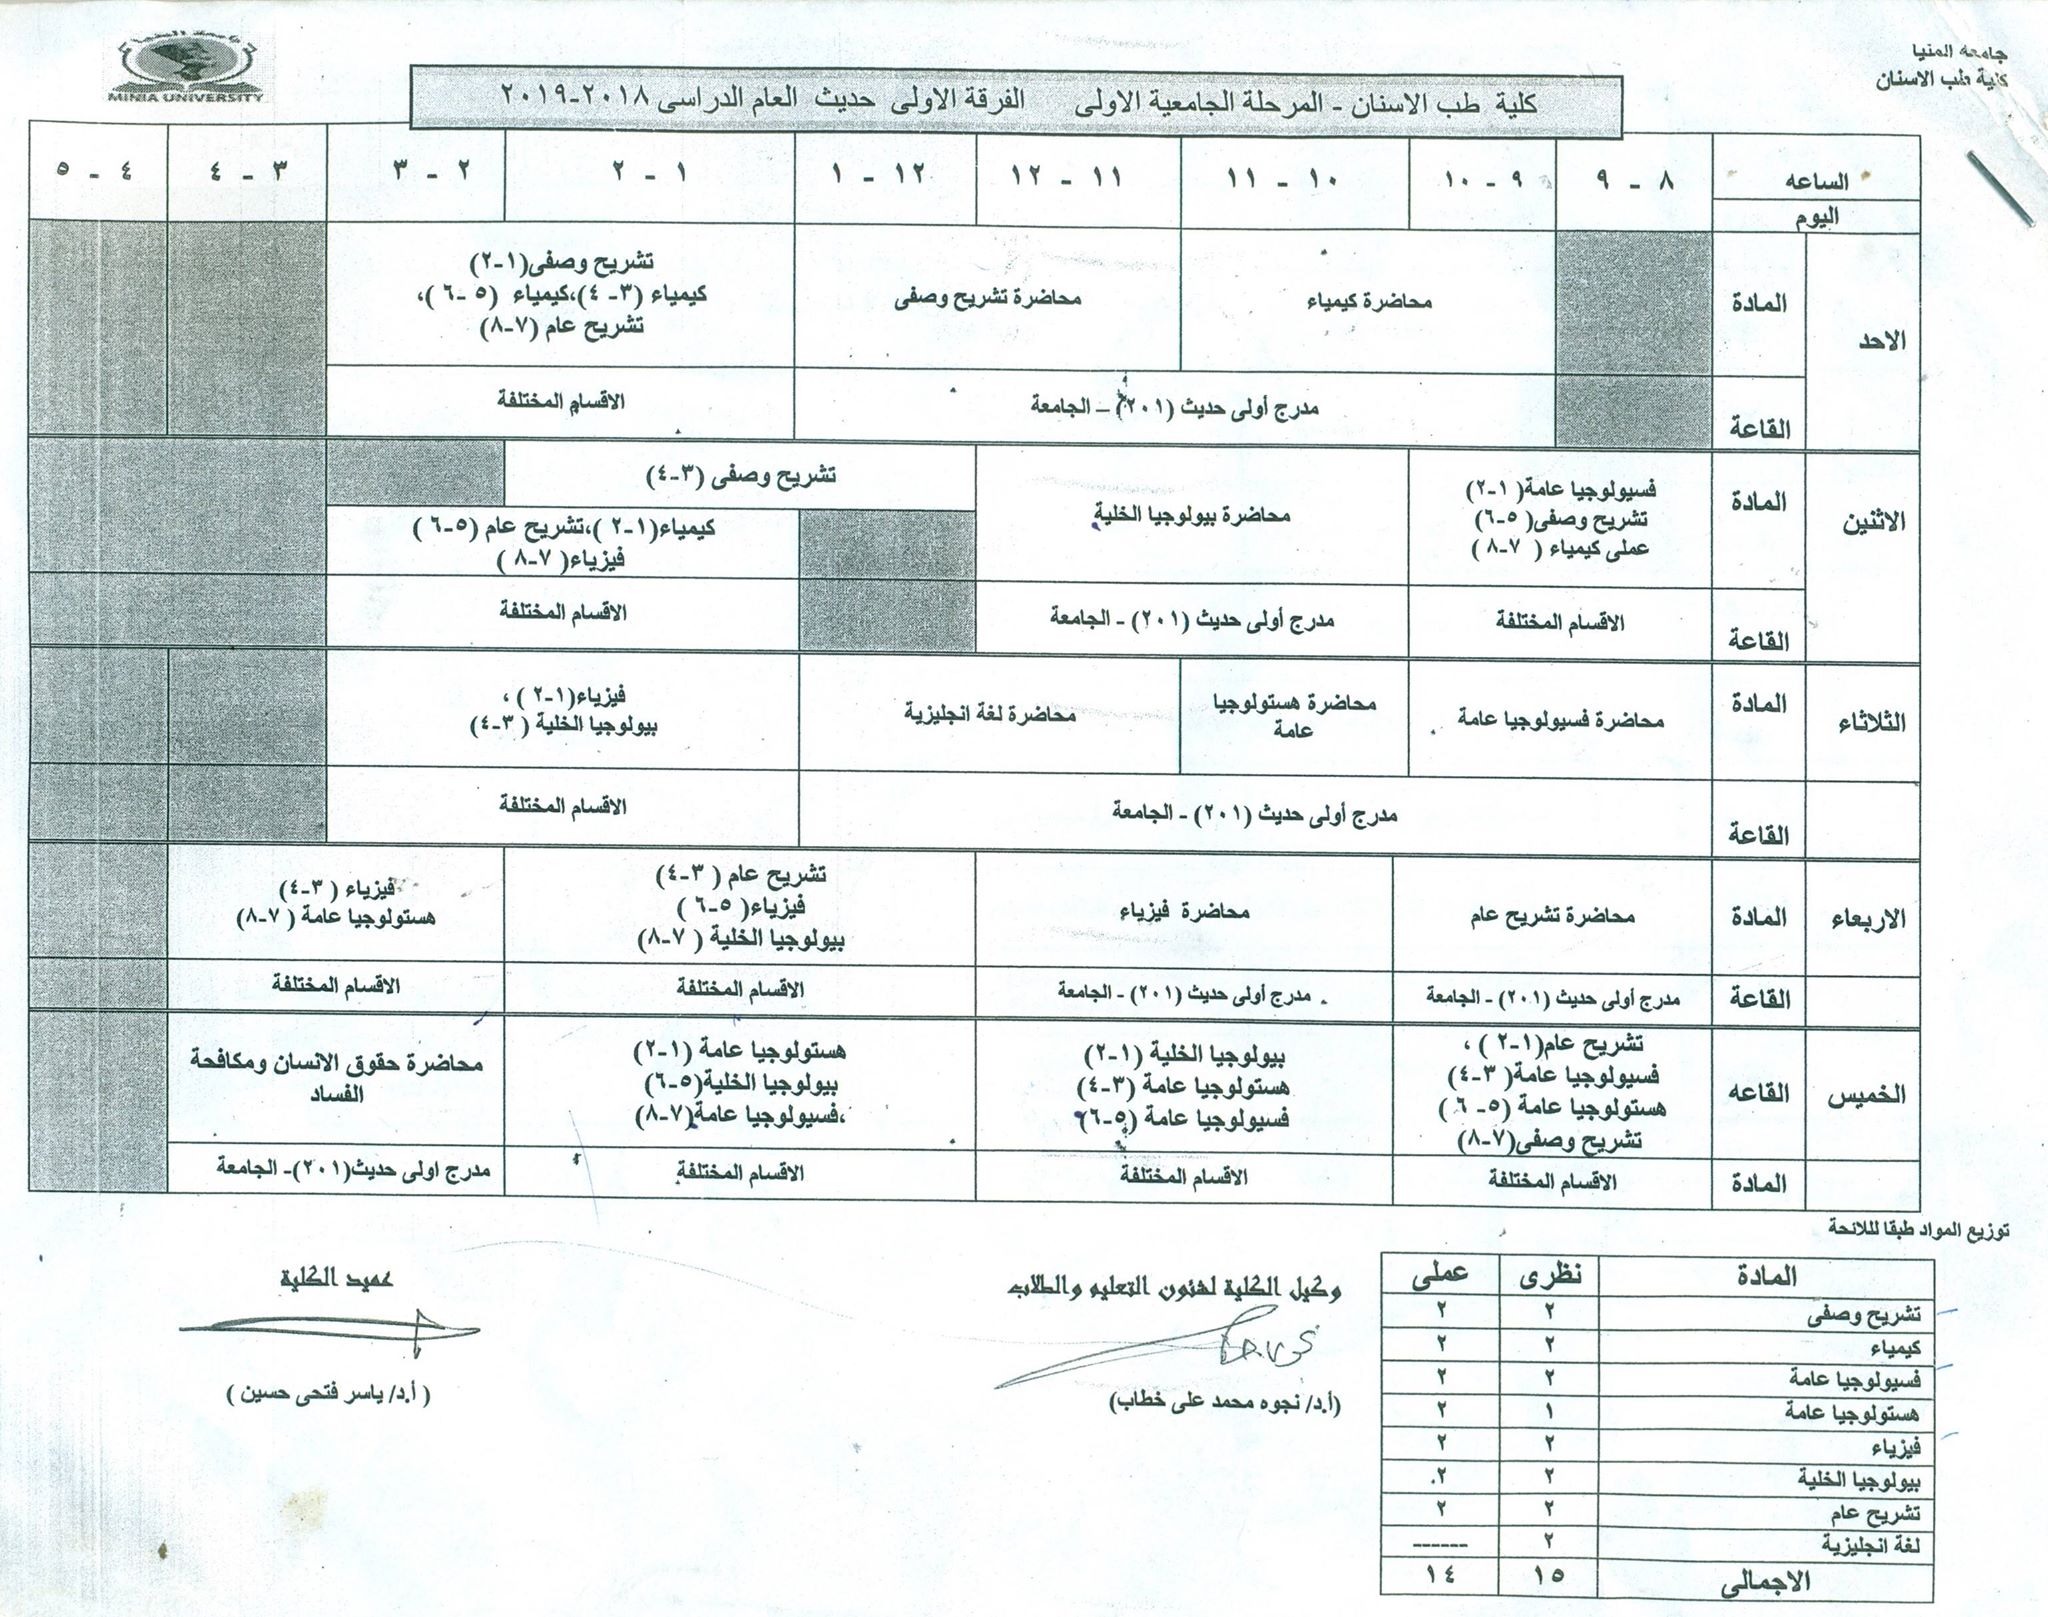 جامعه المنيا
كلية طب الاسنان
MINIA UNIVERSITY
كلية طب الاسنان - المرحلة الجامعية الاولى الفرقة الاولى حديث العام الدراسى ٢٠١٨-٢٠١٩
الساعه
اليوم
٨ - ٩
٩ - ١٠
١٠ - ١١
١١ - ١٢
١٢ - ١
١ - ٢
٢ - ٣
٣ - ٤
٤ - ٥
الاحد
المادة
محاضرة كيمياء
محاضرة تشريح وصفى
تشريح وصفى(١-٢)
كيمياء (٣- ٤)،كيمياء (٥ -٦ )،
تشريح عام (٧-٨)
القاعة
مدرج أولى حديث (٢٠١) - الجامعة
الاقسام المختلفة
الاثنين
المادة
فسيولوجيا عامة( ١-٢)
تشريح وصفى( ٥-٦)
عملى كيمياء ( ٧-٨ )
محاضرة بيولوجيا الخلية
تشريح وصفى (٣-٤)
كيمياء(١-٢ )،تشريح عام (٥-٦ )
فيزياء( ٧-٨ )
القاعة
الاقسام المختلفة
مدرج أولى حديث (٢٠١) - الجامعة
الاقسام المختلفة
الثلاثاء
المادة
محاضرة فسيولوجيا عامة
محاضرة هستولوجيا
عامة
محاضرة لغة انجليزية
فيزياء(١-٢ ) ،
بيولوجيا الخلية ( ٣-٤)
القاعة
مدرج أولى حديث (٢٠١) - الجامعة
الاقسام المختلفة
الاربعاء
المادة
محاضرة تشريح عام
محاضرة فيزياء
تشريح عام ( ٣-٤)
فيزياء( ٥-٦ )
بيولوجيا الخلية ( ٧-٨)
فيزياء ( ٣-٤)
هستولوجيا عامة ( ٧-٨)
القاعة
مدرج أولى حديث (٢٠١) - الجامعة
مدرج أولى حديث (٢٠١) - الجامعة
الاقسام المختلفة
الاقسام المختلفة
الخميس
القاعه
تشريح عام(١-٢ ) ،
فسيولوجيا عامة( ٣-٤)
هستولوجيا عامة (٥- ٦ )
تشريح وصفى(٧-٨)
بيولوجيا الخلية (١-٢)
هستولوجيا عامة (٣-٤)
فسيولوجيا عامة (٥-٦)
هستولوجيا عامة (١-٢)
بيولوجيا الخلية(٥-٦)
،فسيولوجيا عامة(٧-٨)
محاضرة حقوق الانسان ومكافحة
الفساد
المادة
الاقسام المختلفة
الاقسام المختلفة
الاقسام المختلفة
مدرج اولى حديث(٢٠١)- الجامعة
توزيع المواد طبقا لللائحة
المادة نظرى عملى
تشريح وصفى ٢ ٢
كيمياء ٢ ٢
فسيولوجيا عامة ٢ ٢
هستولوجيا عامة ١ ٢
فيزياء ٢ ٢
بيولوجيا الخلية ٢ ٢.
تشريح عام ٢ ٢
لغة انجليزية ٢ ------
الاجمالى ١٥ ١٤
وكيل الكلية لشئون التعليم والطلاب
(أ.د/ نجوه محمد على خطاب)
عميد الكلية
( أ.د/ ياسر فتحى حسين )